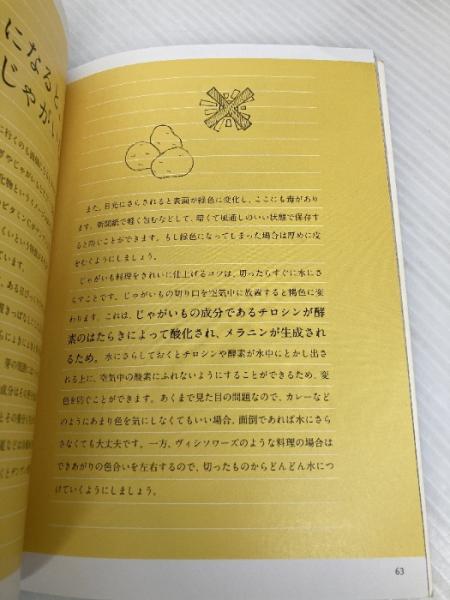 になると、
じゃがい
に行くのも
また、日光にさらされると表面が緑色に変化し、ここにも毒があり
ます。新聞紙で軽く包むなどして、暗くて風通しのいい状態で保存す
ると防ぐことができます。もし緑色になってしまった場合は厚めに皮
をむくようにしましょう。
じゃがいも料理をきれいに仕上げるコツは、切ったらすぐに水にさ
らすことです。じゃがいもの切り口を空気中に放置すると褐色に変
わります。これは、じゃがいもの成分であるチロシンが酵
素のはたらきによって酸化され、メラニンが生成され
るため。水にさらしておくとチロシンや酵素が水中にとかし出さ
れる上に、空気中の酸素にふれないようにすることができるため、変
色を防ぐことができます。あくまで見た目の問題なので、カレーなど
のようにあまり色を気にしなくてもいい場合、面倒であれば水にさ
らさなくても大丈夫です。一方、ヴィシソワーズのような料理の場合は
できあがりの色合いを左右するので、切ったものからどんどん水につ
けていくようにしましょう。
63